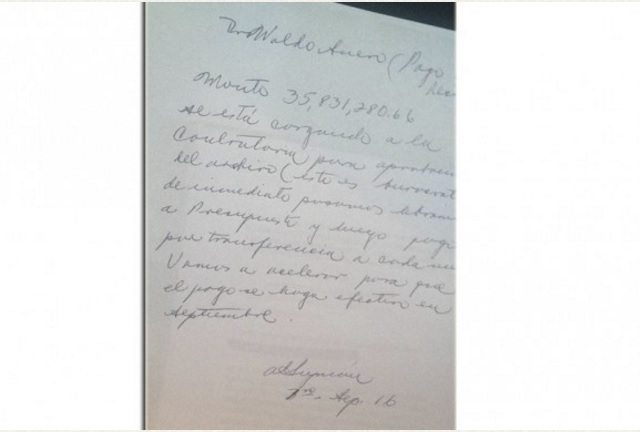 Dr. Waldo Ariel Suero (Pago
Monto 35,831,280.66
se está cargando a la
Contraloría para aprobación
del archivo (este es
de inmediato pasamos libram
a Presupuesto y luego pago
por transferencia a cada un
Vamos a acelerar para que
el pago se haga efectivo en
Septiembre.
1ro. Sep. 16